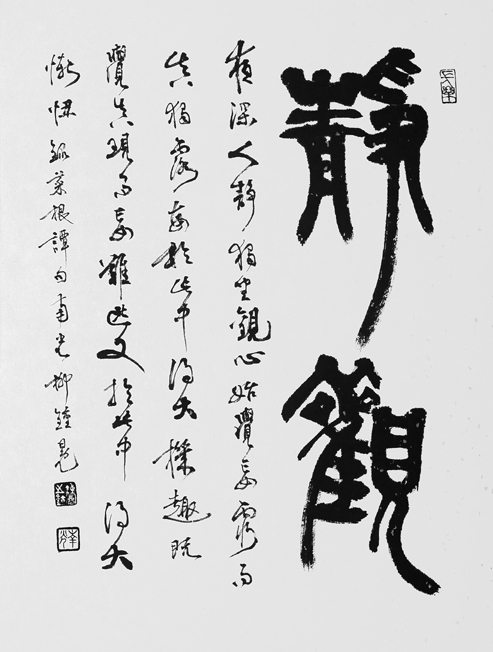 靜觀
夜深人靜獨坐觀心始覺妄窮而
真獨露每於此中得大機趣既
覺真現而妄難逃又於此中得大
慚忸 錄菜根譚句 南光 柳鍾